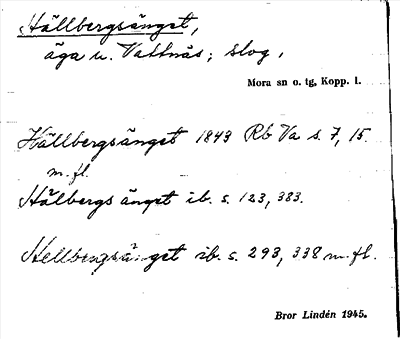 Hällbergsänget,
äga u. Vattnäs; slog,
Mora sn o. tg, Kopp. l.
Hällbergsänget 1843 Rb Va s. 7, 15.
m. fl.
Hälbergs änget ib. s. 123, 383.
Hellbergsänget ib. s. 293, 338 m. fl.
Bror Lindén 1945.